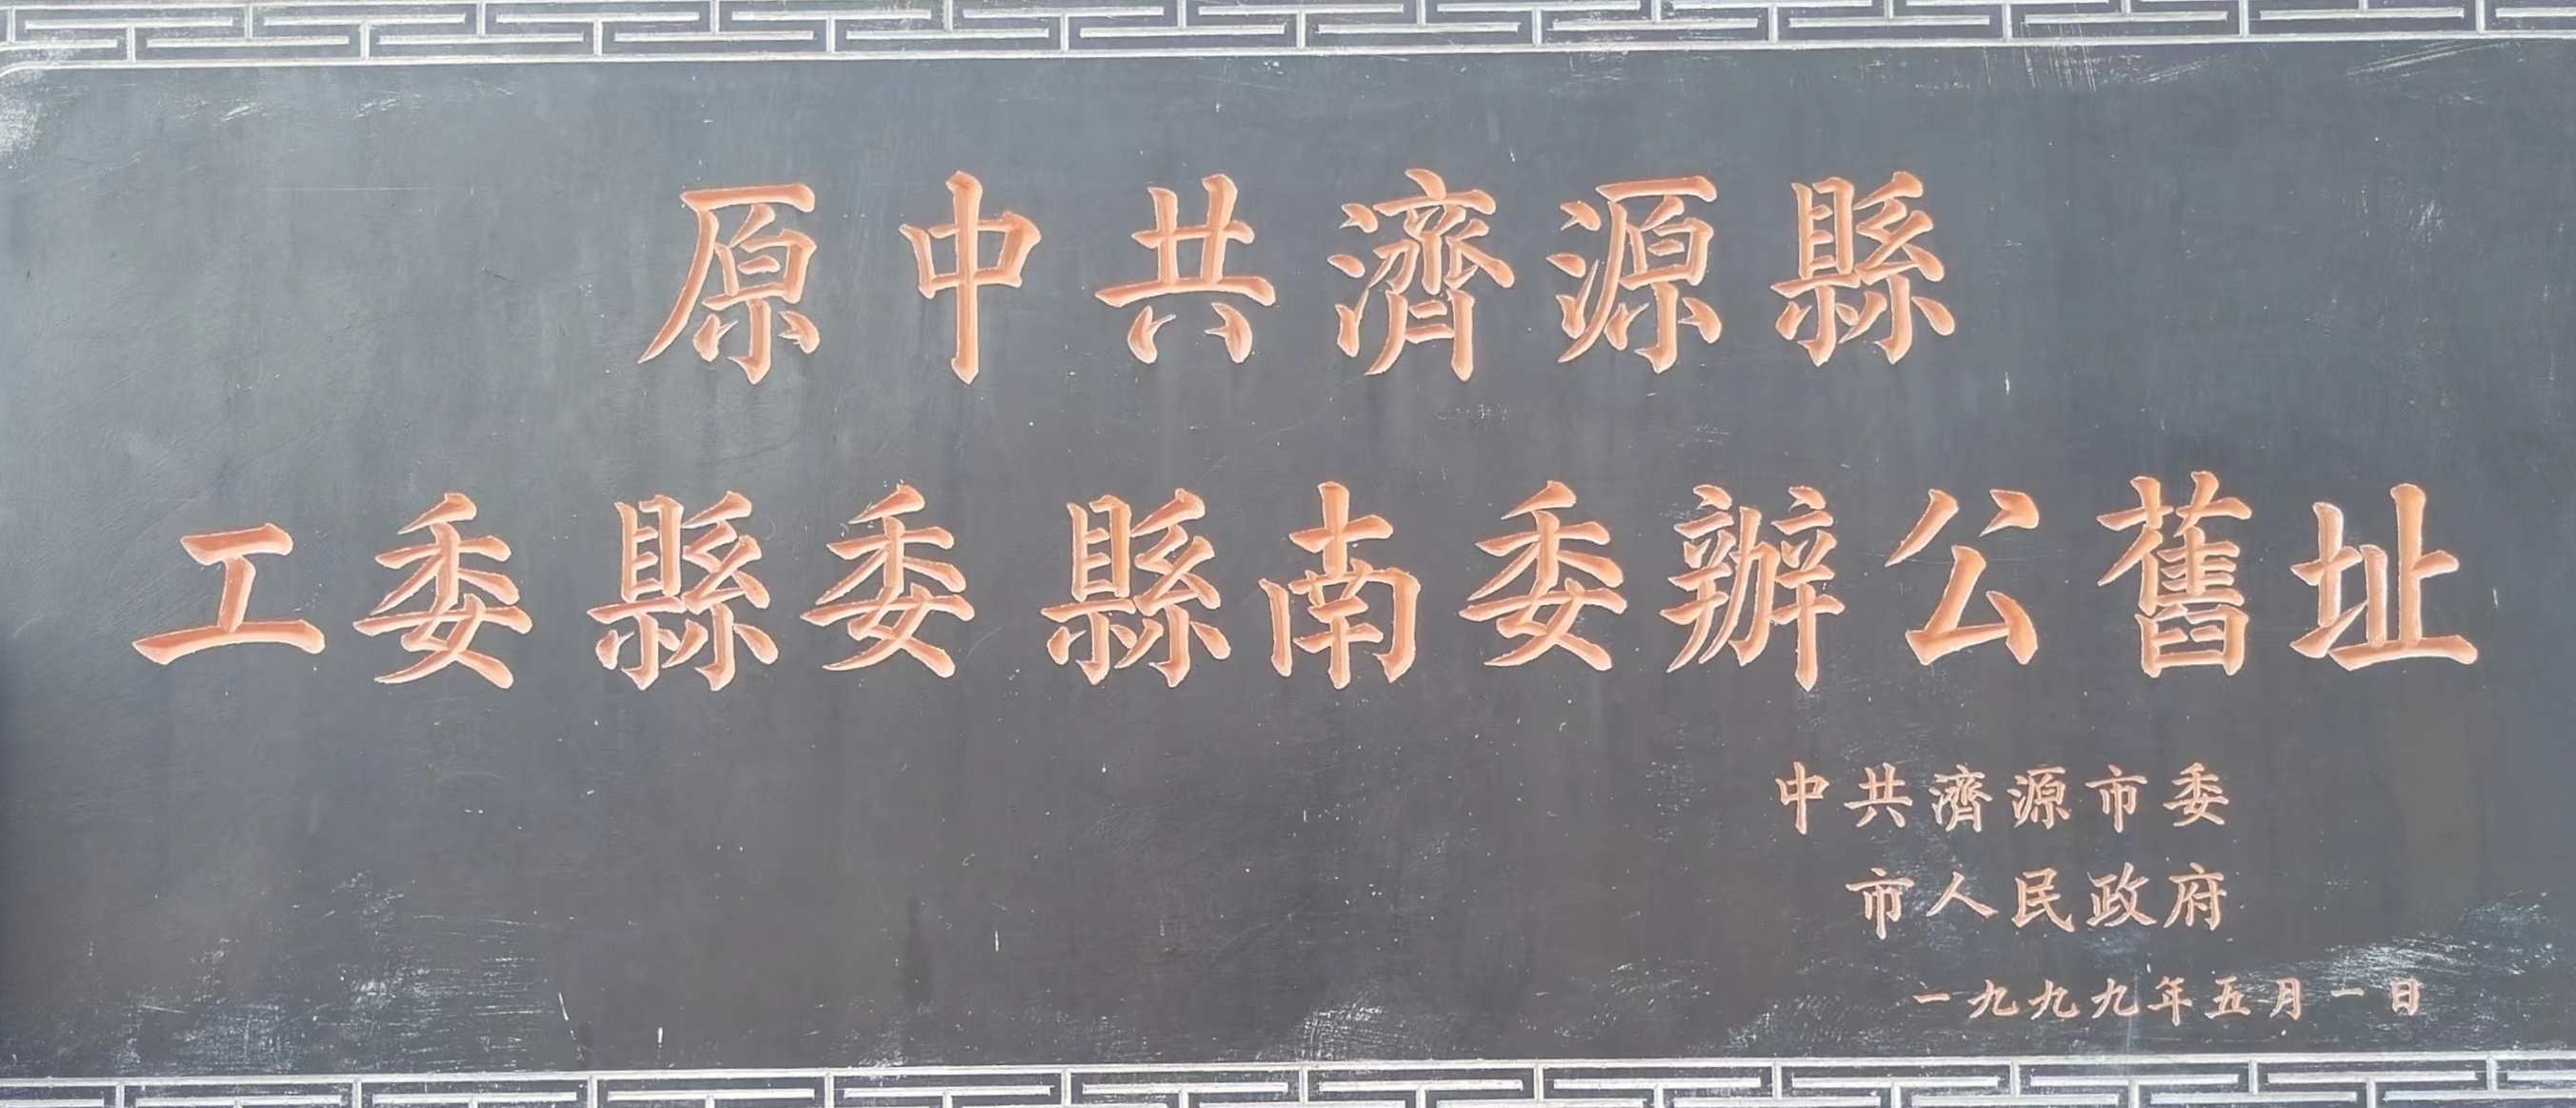 原中共濟源縣
工委 縣委 縣南委辦公舊址
中共濟源市委
市人民政府
一九九九年五月一日